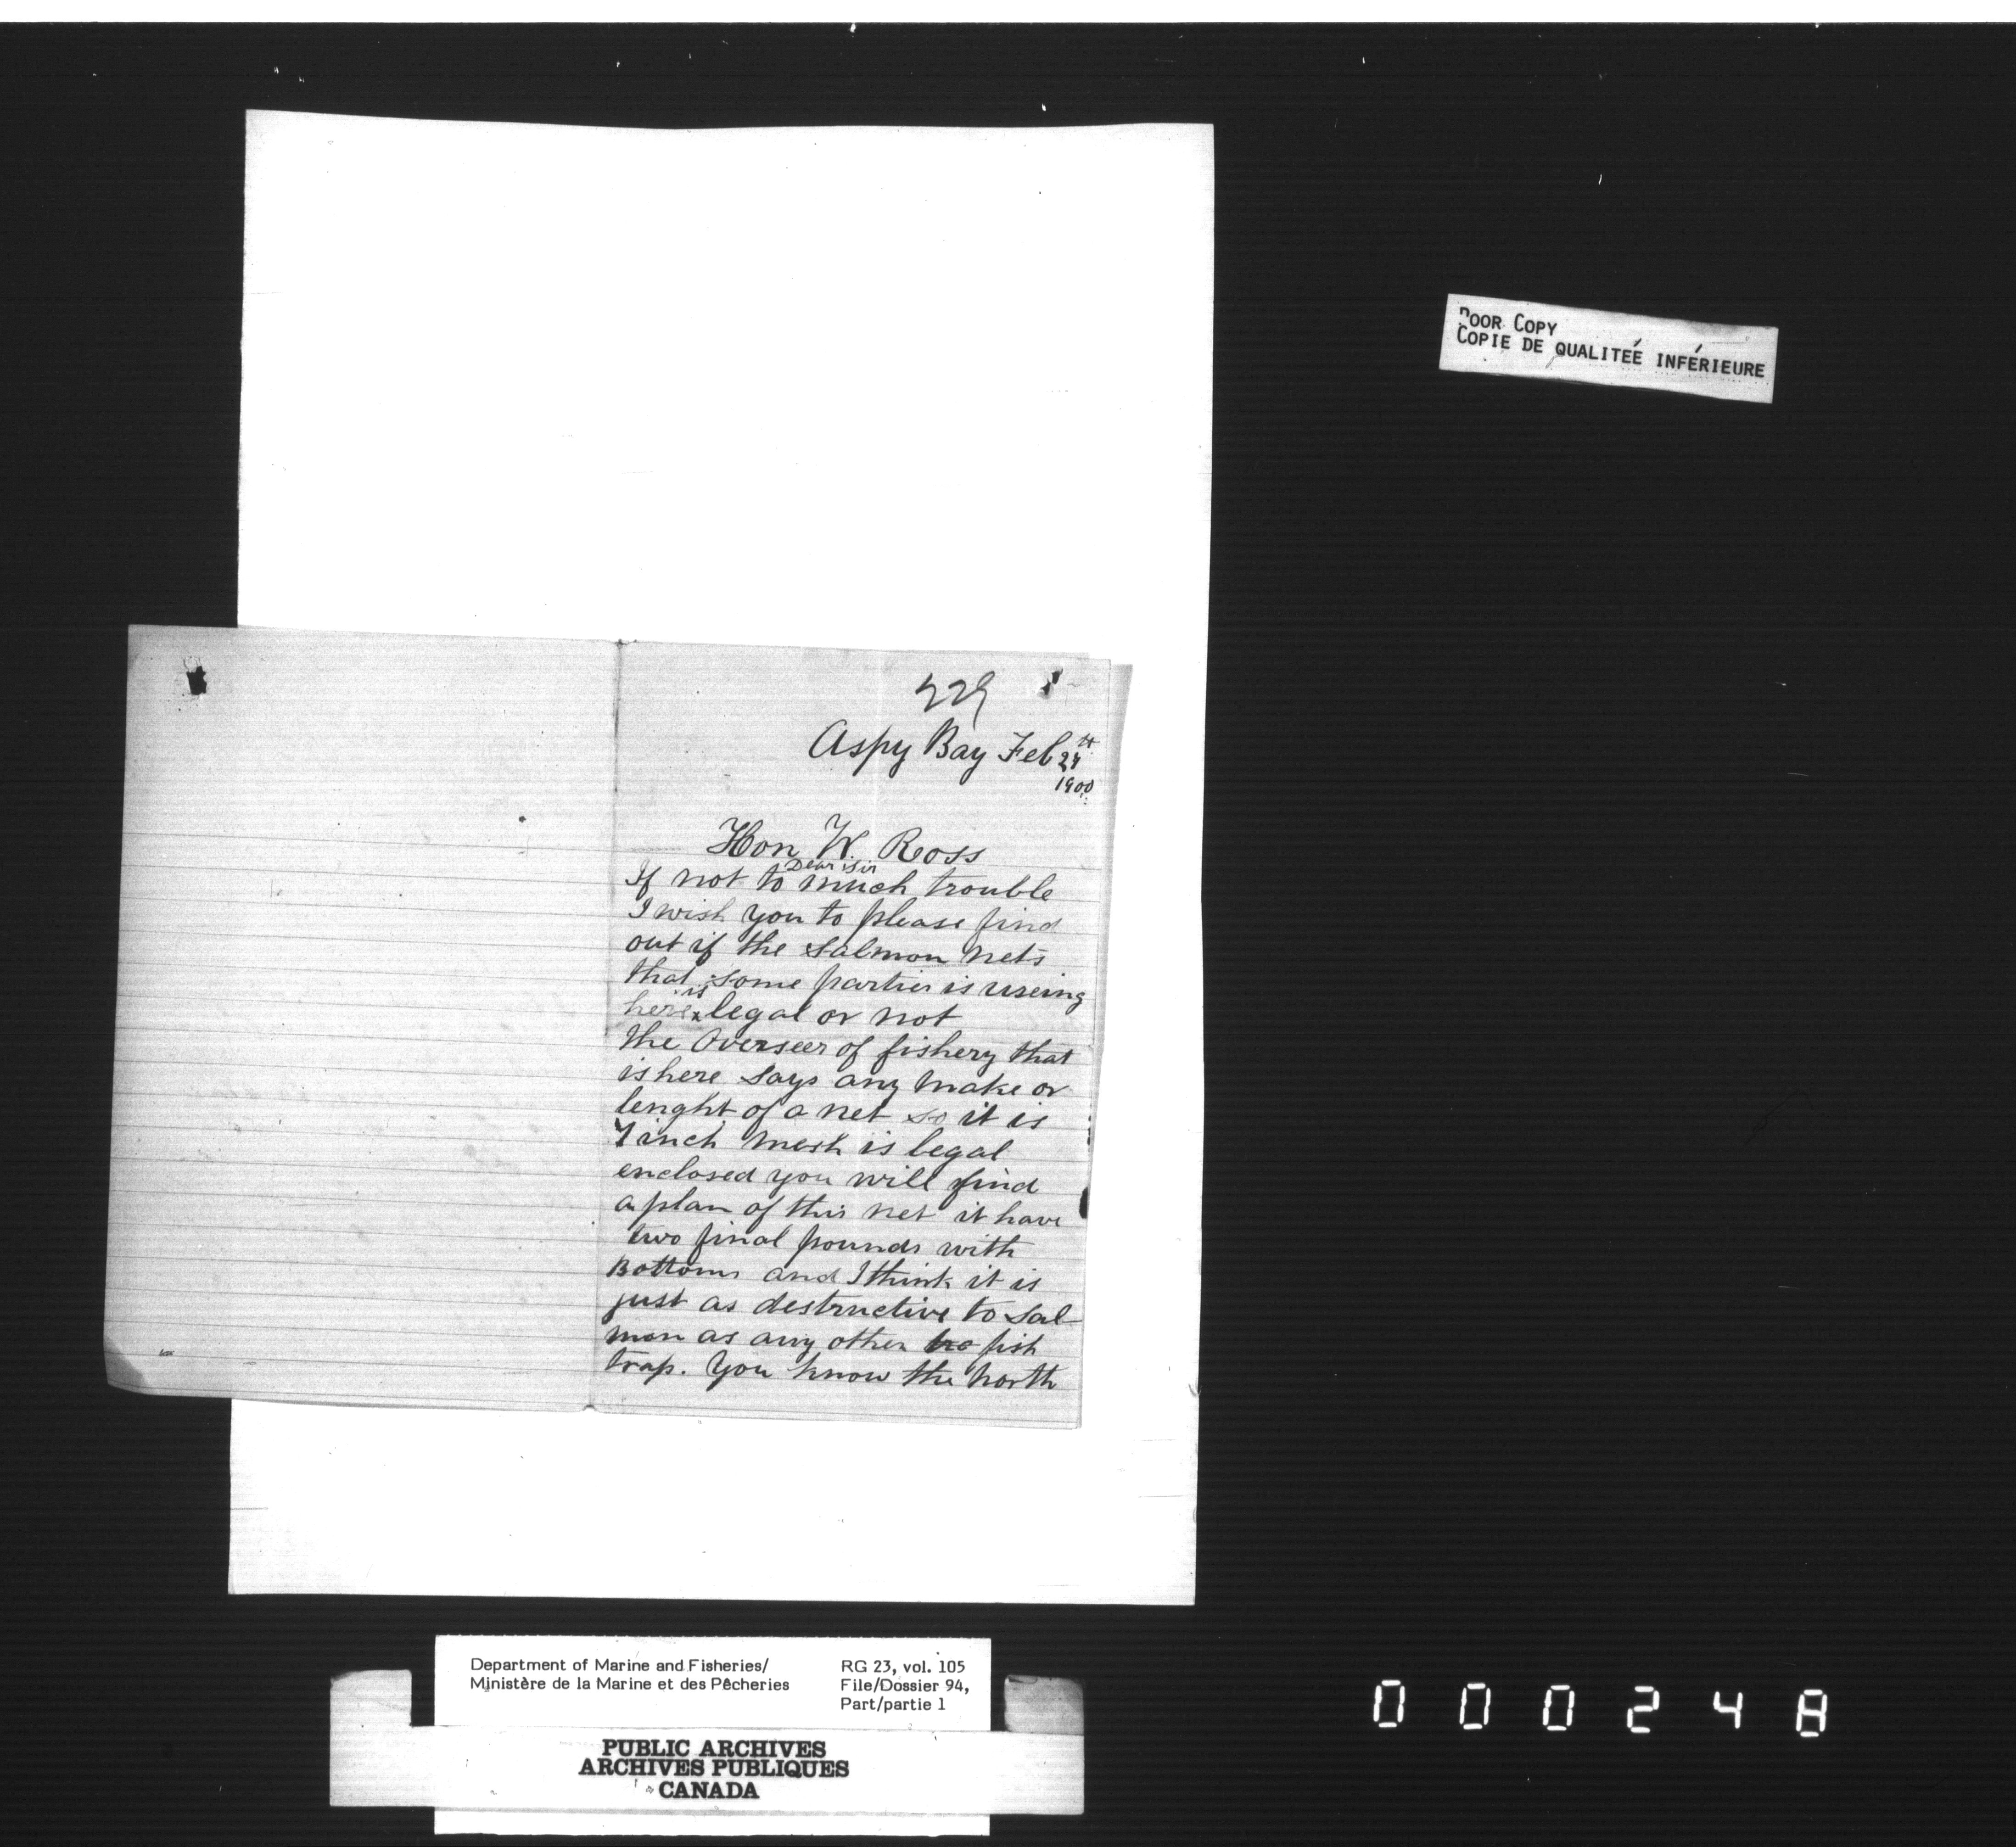 POOR COPY
COPIE DE QUALITEÉ INFÉRIEURE
229
Aspy Bay Feb 24th
1900
Hon W. Ross
Dear Sir
If not to much trouble
I wish you to please find
out if the salmon nets
that some parties is useing
here is legal or not
the Overseer of fishery that
is here says any make or
lenght of a net so it is
inch mesh is legal
enclosed you will find
a plan of this net it have
two final pounds with
Bottoms and I think it is
just as destructive to Sal
mon as any other fish
trap. You know the North
Department of Marine and Fisheries/
Ministère de la Marine et des Pêcheries
RG 23, vol. 105
File/Dossier 94,
Part/partie 1
PUBLIC ARCHIVES
ARCHIVES PUBLIQUES
CANADA
000248